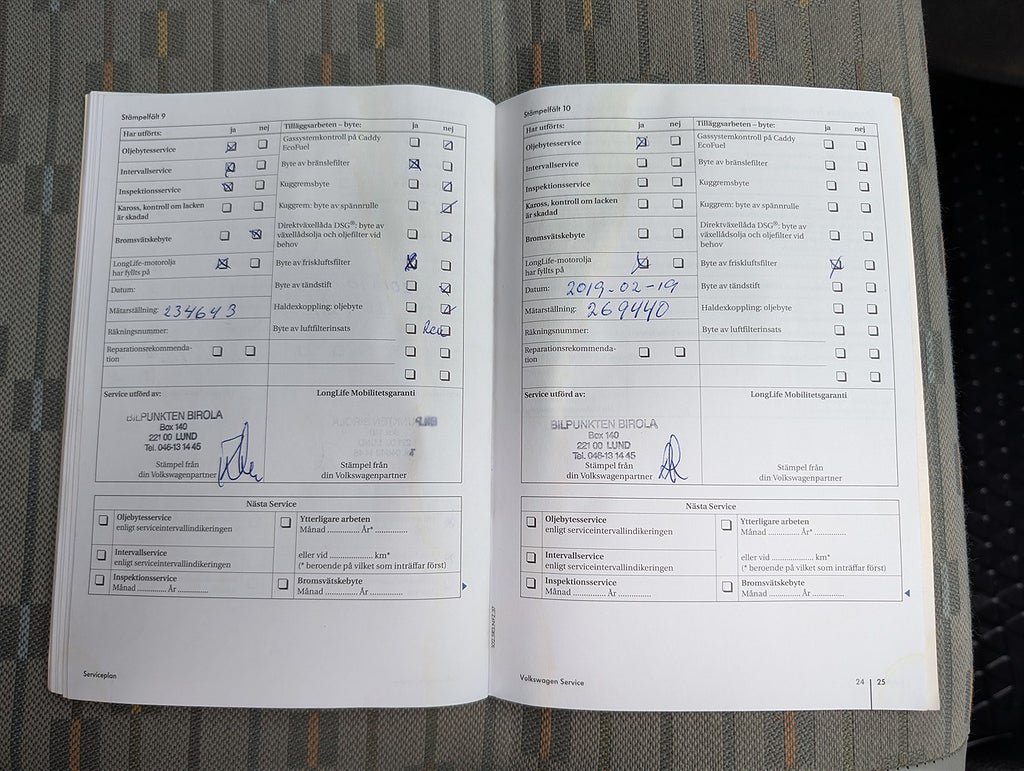 Stämpelfält 9
Har utförts: ja nej
Oljebytesservice
Intervallservice
Inspektionsservice
Kaross, kontroll om lacken
är skadad
Bromsvätskebyte
LongLife-motorolja
har fyllts på
Datum:
Mätarställning: 234643
Räkningsnummer:
Reparationsrekommenda-
tion
Tilläggsarbeten – byte: ja nej
Gassystemkontroll på Caddy
EcoFuel
Byte av bränslefilter
Kuggremsbyte
Kuggrem: byte av spännrulle
Direktväxellåda DSG®: byte av
växellådsolja och oljefilter vid
behov
Byte av friskluftsfilter
Byte av tändstift
Haldexkoppling: oljebyte
Byte av luftfilterinsats
Service utförd av:
BILPUNKTEN BIROLA
Box 140
221 00 LUND
Tel. 046-13 14 45
Stämpel från
din Volkswagenpartner
LongLife Mobilitetsgaranti
Stämpel från
din Volkswagenpartner
Nästa Service
Oljebytesservice
enligt serviceintervallindikeringen
Intervallservice
enligt serviceintervallindikeringen
Inspektionsservice
Månad .............. År ..............
Ytterligare arbeten
Månad ............ År* ..............
eller vid .................. km*
(* beroende på vilket som inträffar först)
Bromsvätskebyte
Månad .............. År ..............
Serviceplan
Stämpelfält 10
Har utförts: ja nej
Oljebytesservice
Intervallservice
Inspektionsservice
Kaross, kontroll om lacken
är skadad
Bromsvätskebyte
LongLife-motorolja
har fyllts på
Datum: 2019-02-19
Mätarställning: 269440
Räkningsnummer:
Reparationsrekommenda-
tion
Tilläggsarbeten – byte: ja nej
Gassystemkontroll på Caddy
EcoFuel
Byte av bränslefilter
Kuggremsbyte
Kuggrem: byte av spännrulle
Direktväxellåda DSG®: byte av
växellådsolja och oljefilter vid
behov
Byte av friskluftsfilter
Byte av tändstift
Haldexkoppling: oljebyte
Byte av luftfilterinsats
Service utförd av:
BILPUNKTEN BIROLA
Box 140
221 00 LUND
Tel. 046-13 14 45
Stämpel från
din Volkswagenpartner
LongLife Mobilitetsgaranti
Stämpel från
din Volkswagenpartner
Nästa Service
Oljebytesservice
enligt serviceintervallindikeringen
Intervallservice
enligt serviceintervallindikeringen
Inspektionsservice
Månad .............. År ..............
Ytterligare arbeten
Månad ............ År* ..............
eller vid .................. km*
(* beroende på vilket som inträffar först)
Bromsvätskebyte
Månad .............. År ..............
Volkswagen Service
24 | 25